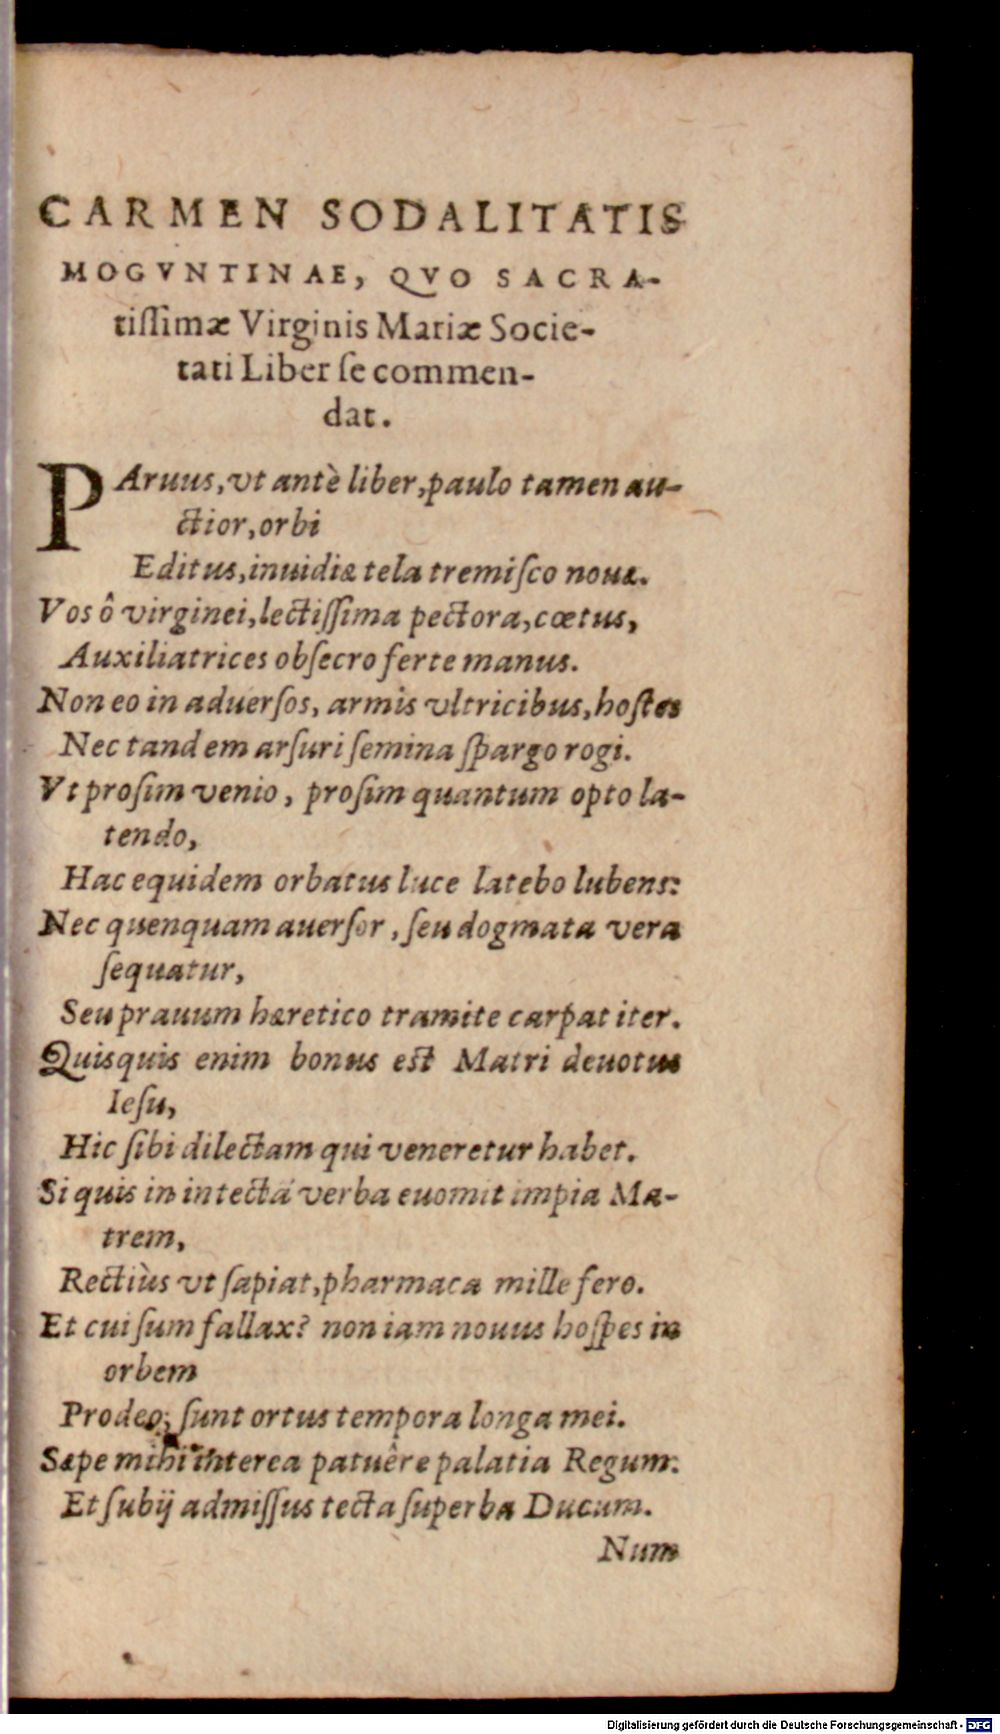 CARMEN SODALITATIS
MOGVNTINAE, QVO SACRA-
tiſſimæ Virginis Mariæ Socie-
tati Liber ſe commen-
dat.
PAruus, vt antè liber, paulo tamen au-
ctior, orbi
Editus, inuidiæ tela tremiſco nouæ.
Vos ô virginei, lectiſſima pectora, cœtus,
Auxiliatrices obſecro ferte manus.
Non eo in aduerſos, armis vltricibus, hoſtes
Nec tandem arſuri ſemina ſpargo rogi.
Vt proſim venio, proſim quantum opto la-
tendo,
Hac equidem orbatus luce latebo lubens:
Nec quenquam auerſor, ſeu dogmata vera
ſequatur,
Seu prauum hæretico tramite carpat iter.
Quisquis enim bonus eſt Matri deuotus
Ieſu,
Hic ſibi dilectam qui veneretur habet.
Si quis in intectá verba euomit impia Ma-
trem,
Rectiùs vt ſapiat, pharmaca mille fero.
Et cui ſum fallax? non iam nouus hoſpes in
orbem
Prodeo; ſunt ortus tempora longa mei.
Sæpe mihi interea patuêre palatia Regum:
Et ſubij admiſſus tecta ſuperba Ducum.
Num
Digitalisierung gefördert durch die Deutsche Forschungsgemeinschaft - DFG